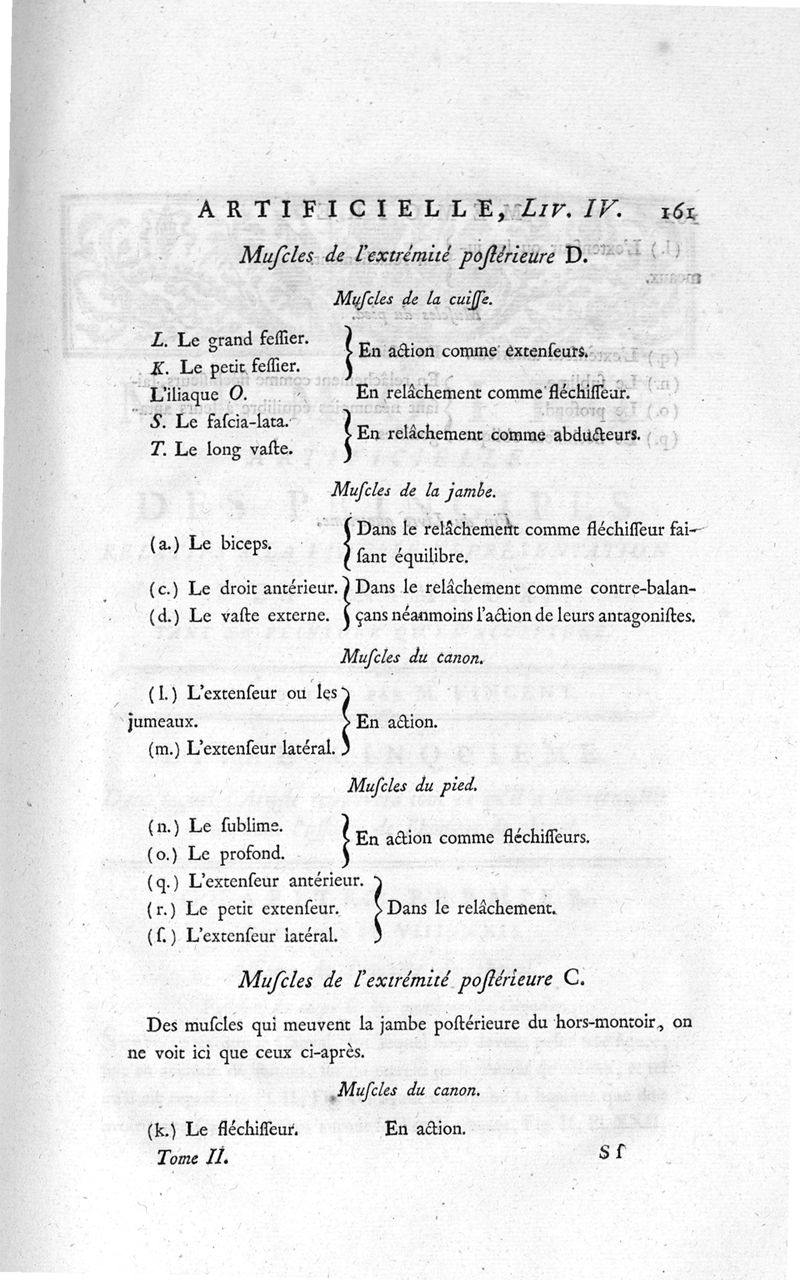 ARTIFICIELLE, LIV. IV. 161
Muſcles de l'extrémité poſtérieure D.
Muſcles de la cuiſſe.
L. Le grand feſſier.
K. Le petit feſſier.
} En action comme extenſeurs.
L'iliaque O. En relâchement comme fléchiſſeur.
S. Le faſcia-lata.
T. Le long vaſte.
} En relâchement comme abducteurs.
Muſcles de la jambe.
(a.) Le biceps. { Dans le relâchement comme fléchiſſeur fai-
ſant équilibre.
(c.) Le droit antérieur. } Dans le relâchement comme contre-balan-
(d.) Le vaſte externe. } çans néanmoins l'action de leurs antagoniſtes.
Muſcles du canon.
(l.) L'extenſeur ou les
jumeaux.
(m.) L'extenſeur latéral.
} En action.
Muſcles du pied.
(n.) Le ſublime.
(o.) Le profond.
} En action comme fléchiſſeurs.
(q.) L'extenſeur antérieur.
(r.) Le petit extenſeur.
(ſ.) L'extenſeur latéral.
} Dans le relâchement.
Muſcles de l'extrémité poſtérieure C.
Des muſcles qui meuvent la jambe poſtérieure du hors-montoir, on
ne voit ici que ceux ci-après.
Muſcles du canon.
(k.) Le fléchiſſeur. En action.
Tome II. S ſ